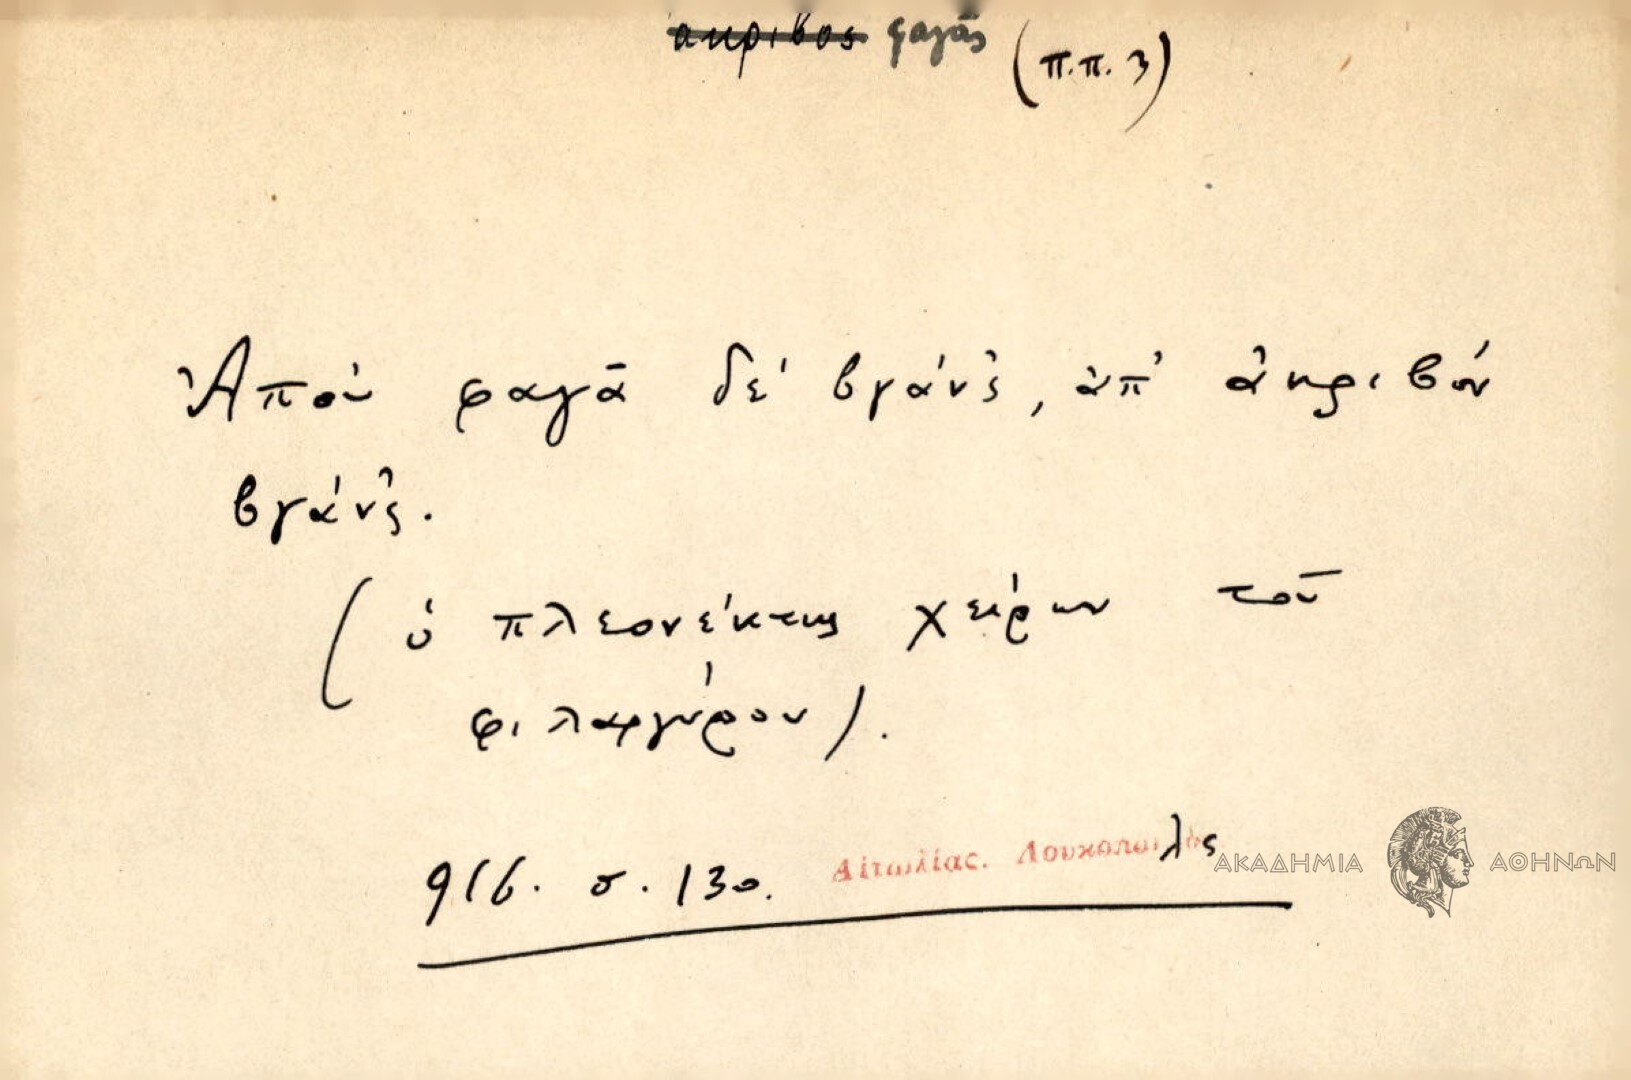 ακριβος φαγᾶς (π.π. 3)
Ἀπού φαγᾶ δέ βγάνς, ἀπ' ἀκριβόν
βγάνς.
(ὁ πλεονέκτης χείρων τοῦ
φιλαργύρου).
916. σ. 130. Αἰτωλίας. Λουκόπουλος
ΑΚΑΔΗΜΙΑ ΑΘΗΝΩΝ